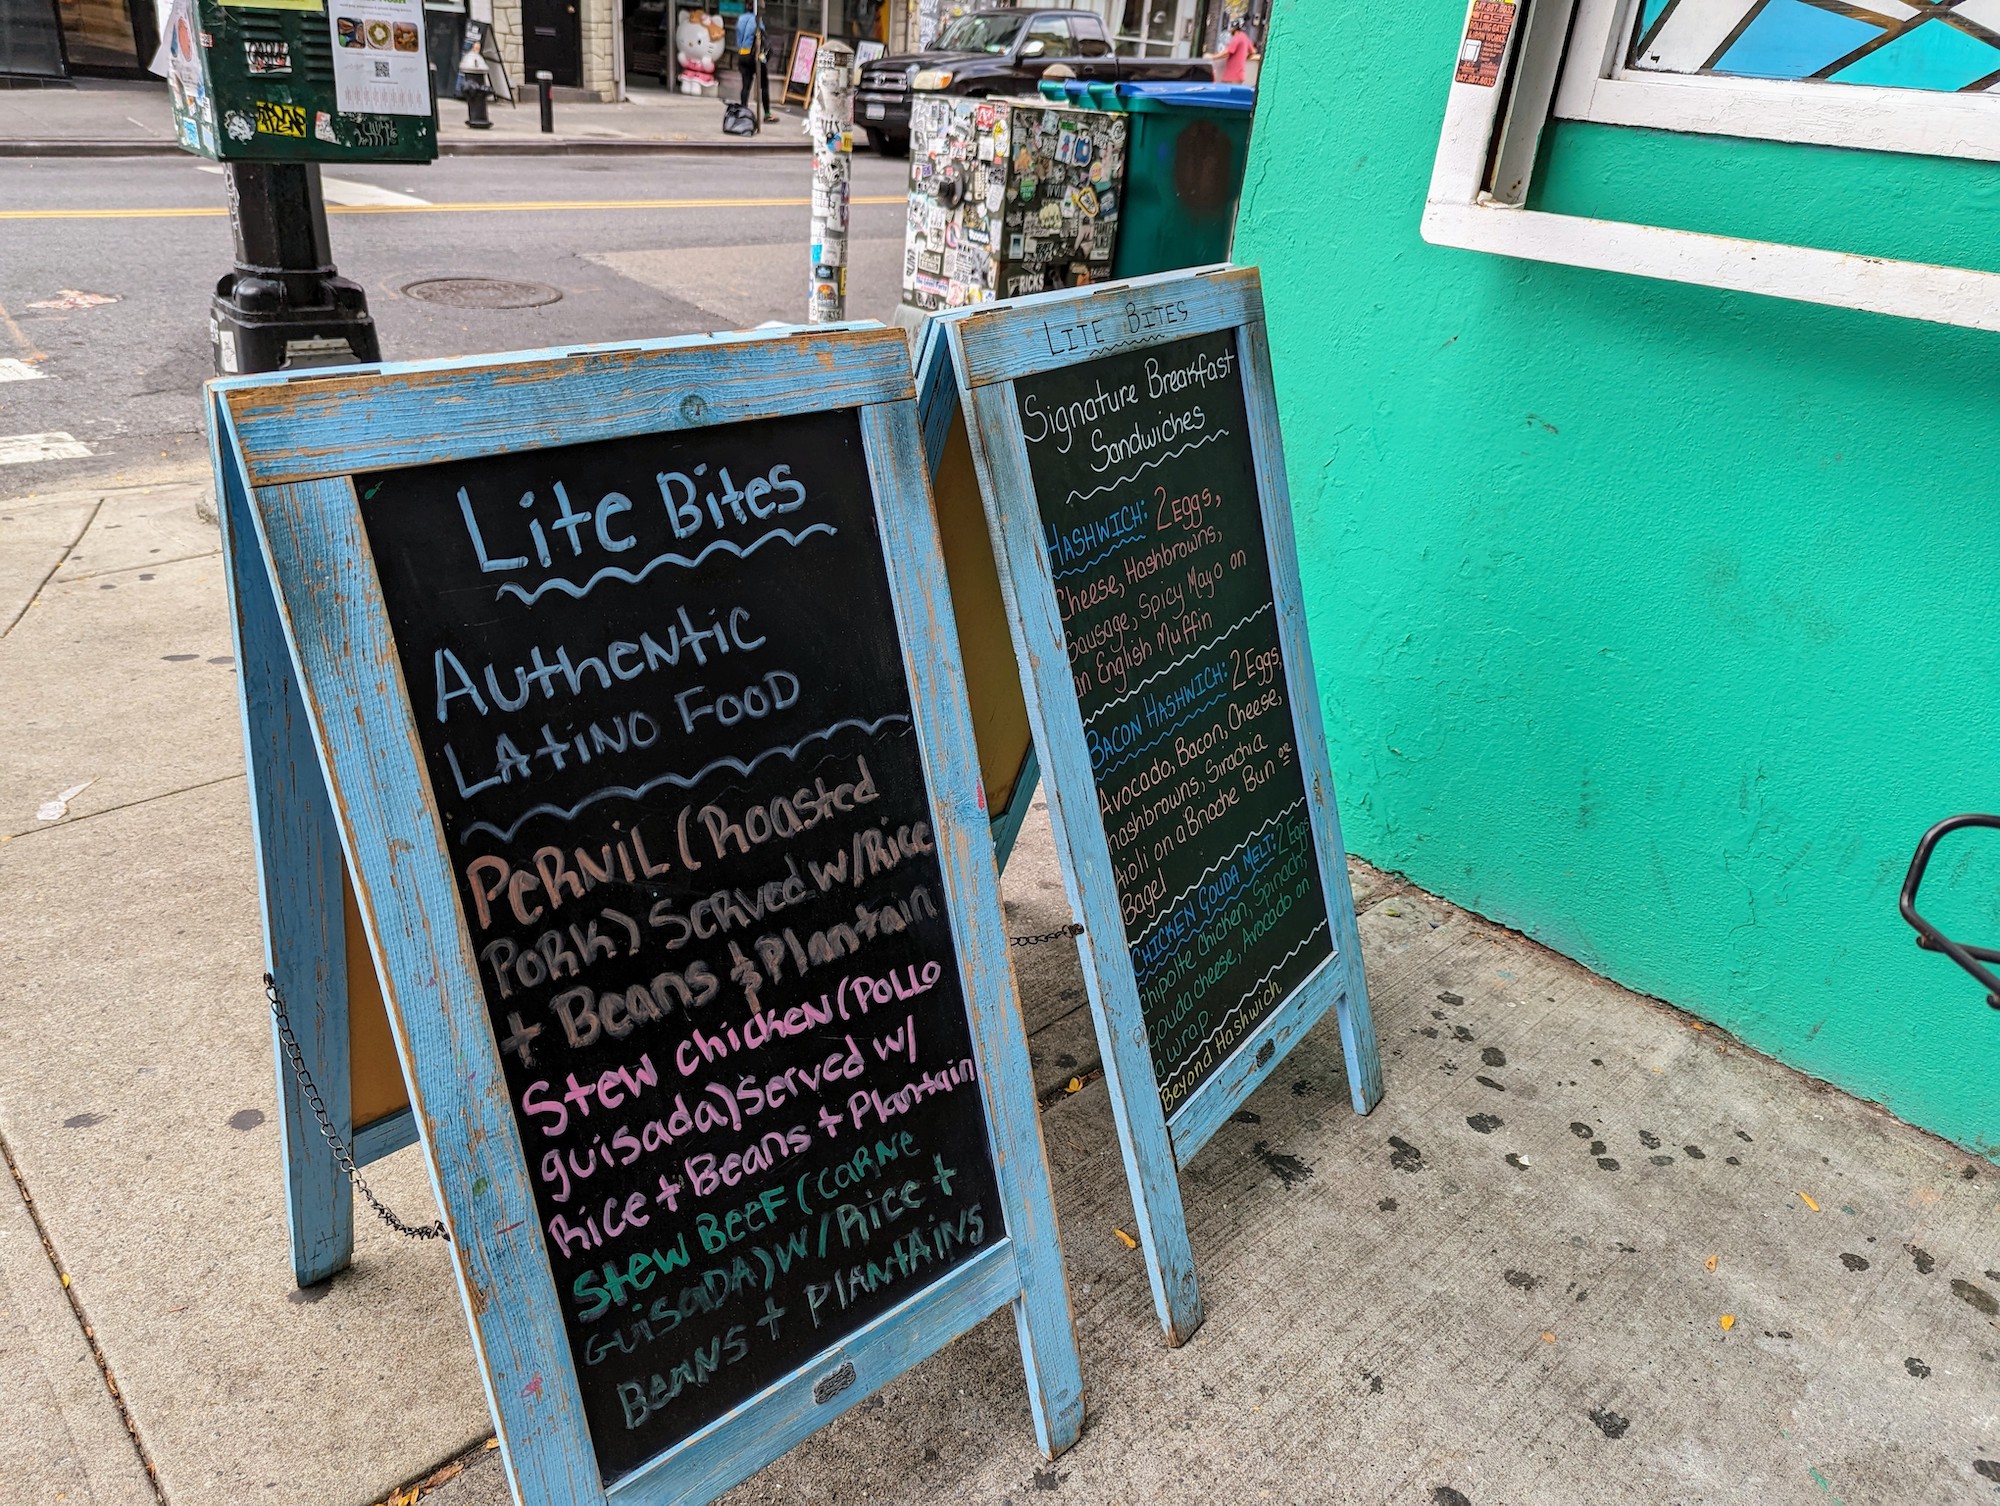 Lite Bites
Authentic
Latino Food
Pernil (Roasted
Pork) Served w/Rice
+ Beans & Plantain
Stew chicken (Pollo
guisada) Served w/
Rice + Beans + Plantain
Stew Beef (Carne
Guisada) w/Rice +
Beans + Plantains
Lite Bites
Signature Breakfast
Sandwiches
Hashwich: 2 Eggs,
Cheese, Hashbrowns,
Sausage, Spicy Mayo on
an English Muffin
Bacon Hashwich: 2 Eggs,
Avocado, Bacon, Cheese,
hashbrowns, Sirachia
Aioli on a Brioche Bun or
Bagel
Chicken Gouda Melt: 2 Eggs
Chipolte Chicken, Spinach,
Gouda cheese, Avocado on
a wrap.
Beyond Hashwich